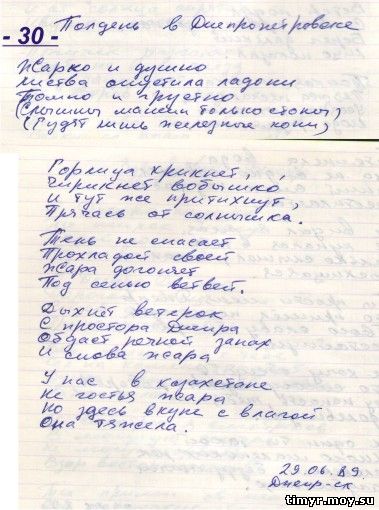 Полдень в Днепропетровске
- 30 -
Жарко и душно
Листва опустила ладони
Томно и грустно
(Слышны машин только стоны)
(Гудят лишь железные кони)
Горлица крикнет,
Чирикнет вобышко
И тут же притихнут,
Прячась от солнышка.
Тень не спасает
Прохладой своей
Жара догоняет
Под сенью ветвей.
Дыхнёт ветерок
С простора Днепра
Обдаёт речной запах
И снова жара
У нас в Казахстане
Не гостья жара
Но здесь вкупе с влагой
Она тяжела.
29.06.89.
Днепр-ск
timyr.moy.su